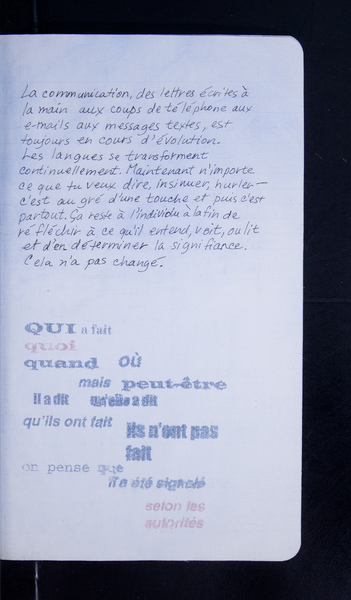 La communication, des lettres écrites à
la main aux coups de téléphone aux
e-mails aux messages textes, est
toujours en cours d'évolution.
Les langues se transforment
continuellement. Maintenant n'importe
ce que tu veux dire, insinuer, hurler—
c'est au gré d'une touche et puis c'est
partout. Ça reste à l'individu à la fin de
réfléchir à ce qu'il entend, voit, ou lit
et d'en déterminer la signifiance.
Cela n'a pas changé.
QUI a fait
quoi
quand OÙ
mais peut-être
il a dit qu'elle a dit
qu'ils ont fait ils n'ont pas
fait
on pense que
il a été signalé
selon les
autorités